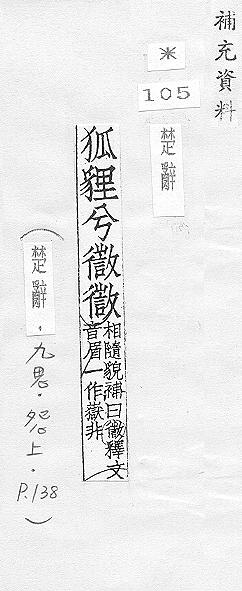 補充資料
※
105
楚辭
狐貍兮𢕄𢕄
相隨貌補曰𢕄釋文
音眉一作嶽非
(楚辭．九思．怨上．P.138)